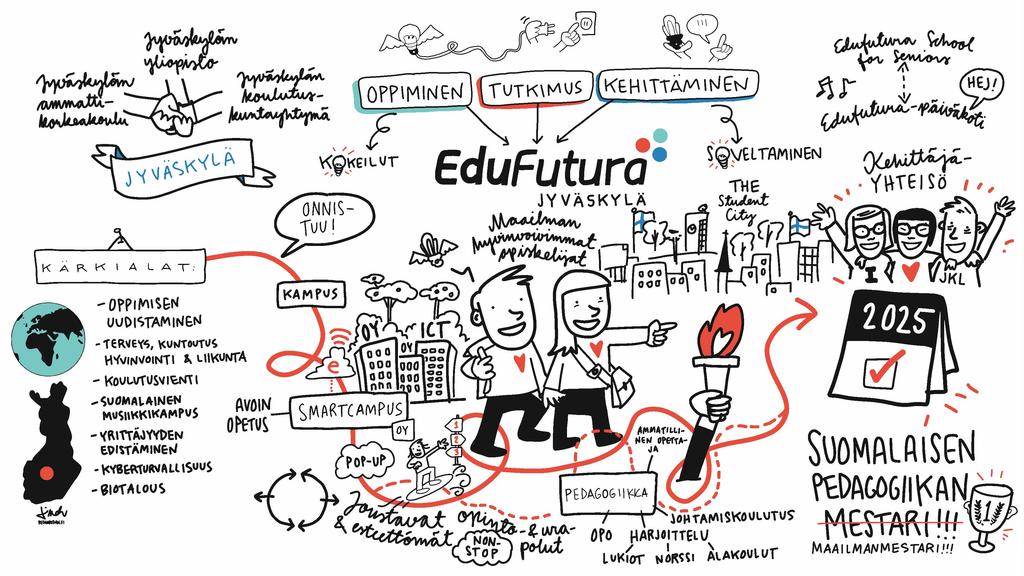 Jyväskylän
yliopisto
Jyväskylän
ammatti-
korkeakoulu
Jyväskylän
koulutus-
kuntayhtymä
JYVÄSKYLÄ
OPPIMINEN
TUTKIMUS
KEHITTÄMINEN
KOKEILUT
SOVELTAMINEN
EduFutura
JYVÄSKYLÄ
Edufutura School
for Seniors
HEJ!
Edufutura-päiväkoti
Kehittäjä-
YHTEISÖ
I
JKL
THE
Student
City
Maailman
hyvinvoivimmat
opiskelijat
ONNIS-
TUU!
KÄRKIALAT:
- OPPIMISEN
UUDISTAMINEN
- TERVEYS, KUNTOUTUS
HYVINVOINTI & LIIKUNTA
- KOULUTUSVIENTI
- SUOMALAINEN
MUSIIKKIKAMPUS
- YRITTÄJYYDEN
EDISTÄMINEN
- KYBERTURVALLISUUS
- BIOTALOUS
KAMPUS
OY
ICT
OY
e
AVOIN
OPETUS
SMARTCAMPUS
OY
POP-UP
1
2
3
Joustavat opinto- & ura-
& esteettömät polut
NON-
STOP
AMMATILLI-
NEN OPETTA-
JA
PEDAGOGIIKKA
JOHTAMISKOULUTUS
OPO
HARJOITTELU
LUKIOT
NORSSI
ALAKOULUT
2025
SUOMALAISEN
PEDAGOGIIKAN
MESTARI!!!
MAAILMANMESTARI!!!
1